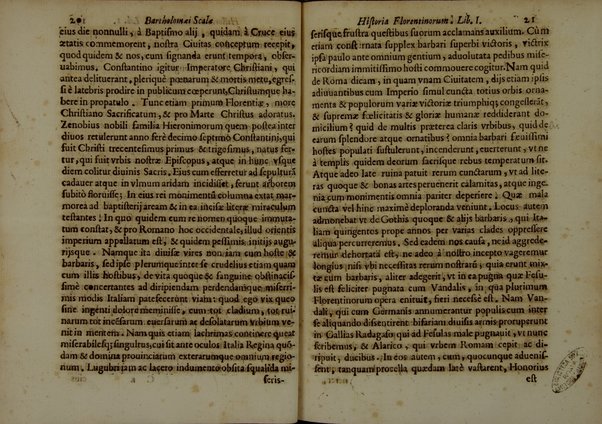 201 Bartholomæi Scalæ
eius die nonnulli, à Baptismo alij, quidam à Cruce eius
ætatis commemorent, nostra Ciuitas conceptum recepit,
quod quidem & nos, cum signanda erunt tempora, obser-
uabimus. Constantino igitur Imperatore Christiani, qui
antea delituerant, plerique pœnarum & mortis metu, egres-
si è latebris prodire in publicum cœperunt, Christumque ha-
bere in propatulo. Tunc etiam primum Florentiæ, more
Christiano Sacrificatum, & pro Marte Christus adoratus.
Zenobius nobili familia Hieronimorum quem postea inter
diuos retulerunt anno ferè decimo septimo Constantini, qui
fuit Christi trecentesimus primus & trigesimus, natus fer-
tur, qui fuit vrbis nostræ Episcopus, atque in hunc vsque
diem colitur diuinis Sacris. Eius cum efferretur ad sepulturā
cadauer atque in vlmum aridam incidisset, ferunt arborem
subitò floruisse; In eius rei monimentū columna extat mar-
morea ad baptisterij aream & in ea incisæ literæ miraculum
testantes; In quo quidem cum re nomen quoque immuta-
tum constat, & pro Romano hoc occidentale, illud orientis
imperium appallatum est, & quidem pessimis initijs augu-
rijsque. Namque ita diuisæ vires non iam cum hoste &
barbaris, sed ipsæ plerunque inter se crudelius etiam quam
cum illis hostibus, de vita quoque & sanguine obstinacis-
simè concertantes ad diripiendam perdendamque miserri-
mis modis Italiam patefecerunt viam: quod ego vix queo
sine ingenti dolore meminisse, cum tot cladium, tot rui-
narum tot incēsarum euersarūm ac desolatarum vrbium ve-
nit in mentem. Nam quis etiam lachrimas continere queat
miserabiles que singultus, cui sit ante oculos Italia Regina quō-
dam & domina prouinciarum exterarumque omnium regio-
num, Lugubri iam ac lacero indumento obsita squalida mi-
seris-
Historia Florentinorum. Lib. I. 21
serisque frustra questibus suorum acclamans auxilium. Cūm
etiam consternata supplex barbari superbi victoris, victrix
ipsa paulo ante omnium gentium, aduoluta pedibus mise-
ricordiam immitissimo hosti commouere cogitur. Nam quid
de Roma dicam, in quam vnam Ciuitatem, dijs etiam ipsis
adiuuantibus cum Imperio simul cuncta totius orbis orna-
menta & populorum variæ victoriæ triumphique congesserāt,
& supremæ fœlicitatis & gloriæ humanæ reddiderant do-
micilium? quid de multis præterea claris vrbibus, quid de
earum splendore atque ornatibus? omnia barbari feuissimi
hostes populati sustulerunt, incenderunt, euerterunt, vt ne
à templis quidem deorum sacrisque rebus temperatum sit.
Atque adeo late ruina patuit rerum cunctarum, vt ad lite-
ras quoque & bonas artes peruenerit calamitas, atque inge-
nia cum monimentis omnia pariter deperire. Quæ mala
cuncta vel hinc maximè deploranda veniunt. Locus autem
admonebat vt de Gothis quoque & alijs barbaris, qui Ita-
liam quingentos prope annos per varias clades oppressere
aliqua percurreremus. Sed eadem nos causa, neid aggrede-
remur dehortata est, ne adeo à nostro incepto vageremur
longius, nisi vbi necessitas rerum nostrarū, quia erunt mix-
tæ cum barbaris, aliter adegerit, vt in ea pugna quæ Fesu-
lis est feliciter pugnata cum Vandalis, in qua plurimum
Florentinorum opera enituit, fieri necessè est. Nam Van-
dali, qui cum Germanis annumerantur populis cum inter
se aliquando dissentirent bifariam diuisis armis proruperunt
in Gallias Radagaso, qui ad Fesulas male pugnauit, vt nunc
scribemus, & Alarico, qui vrbem Romam cepit ac di-
ripuit, ducibus. In eos autem, cum, quocunque aduenis-
sent, tanquam procella quædam latè vastarent, Honorius
est